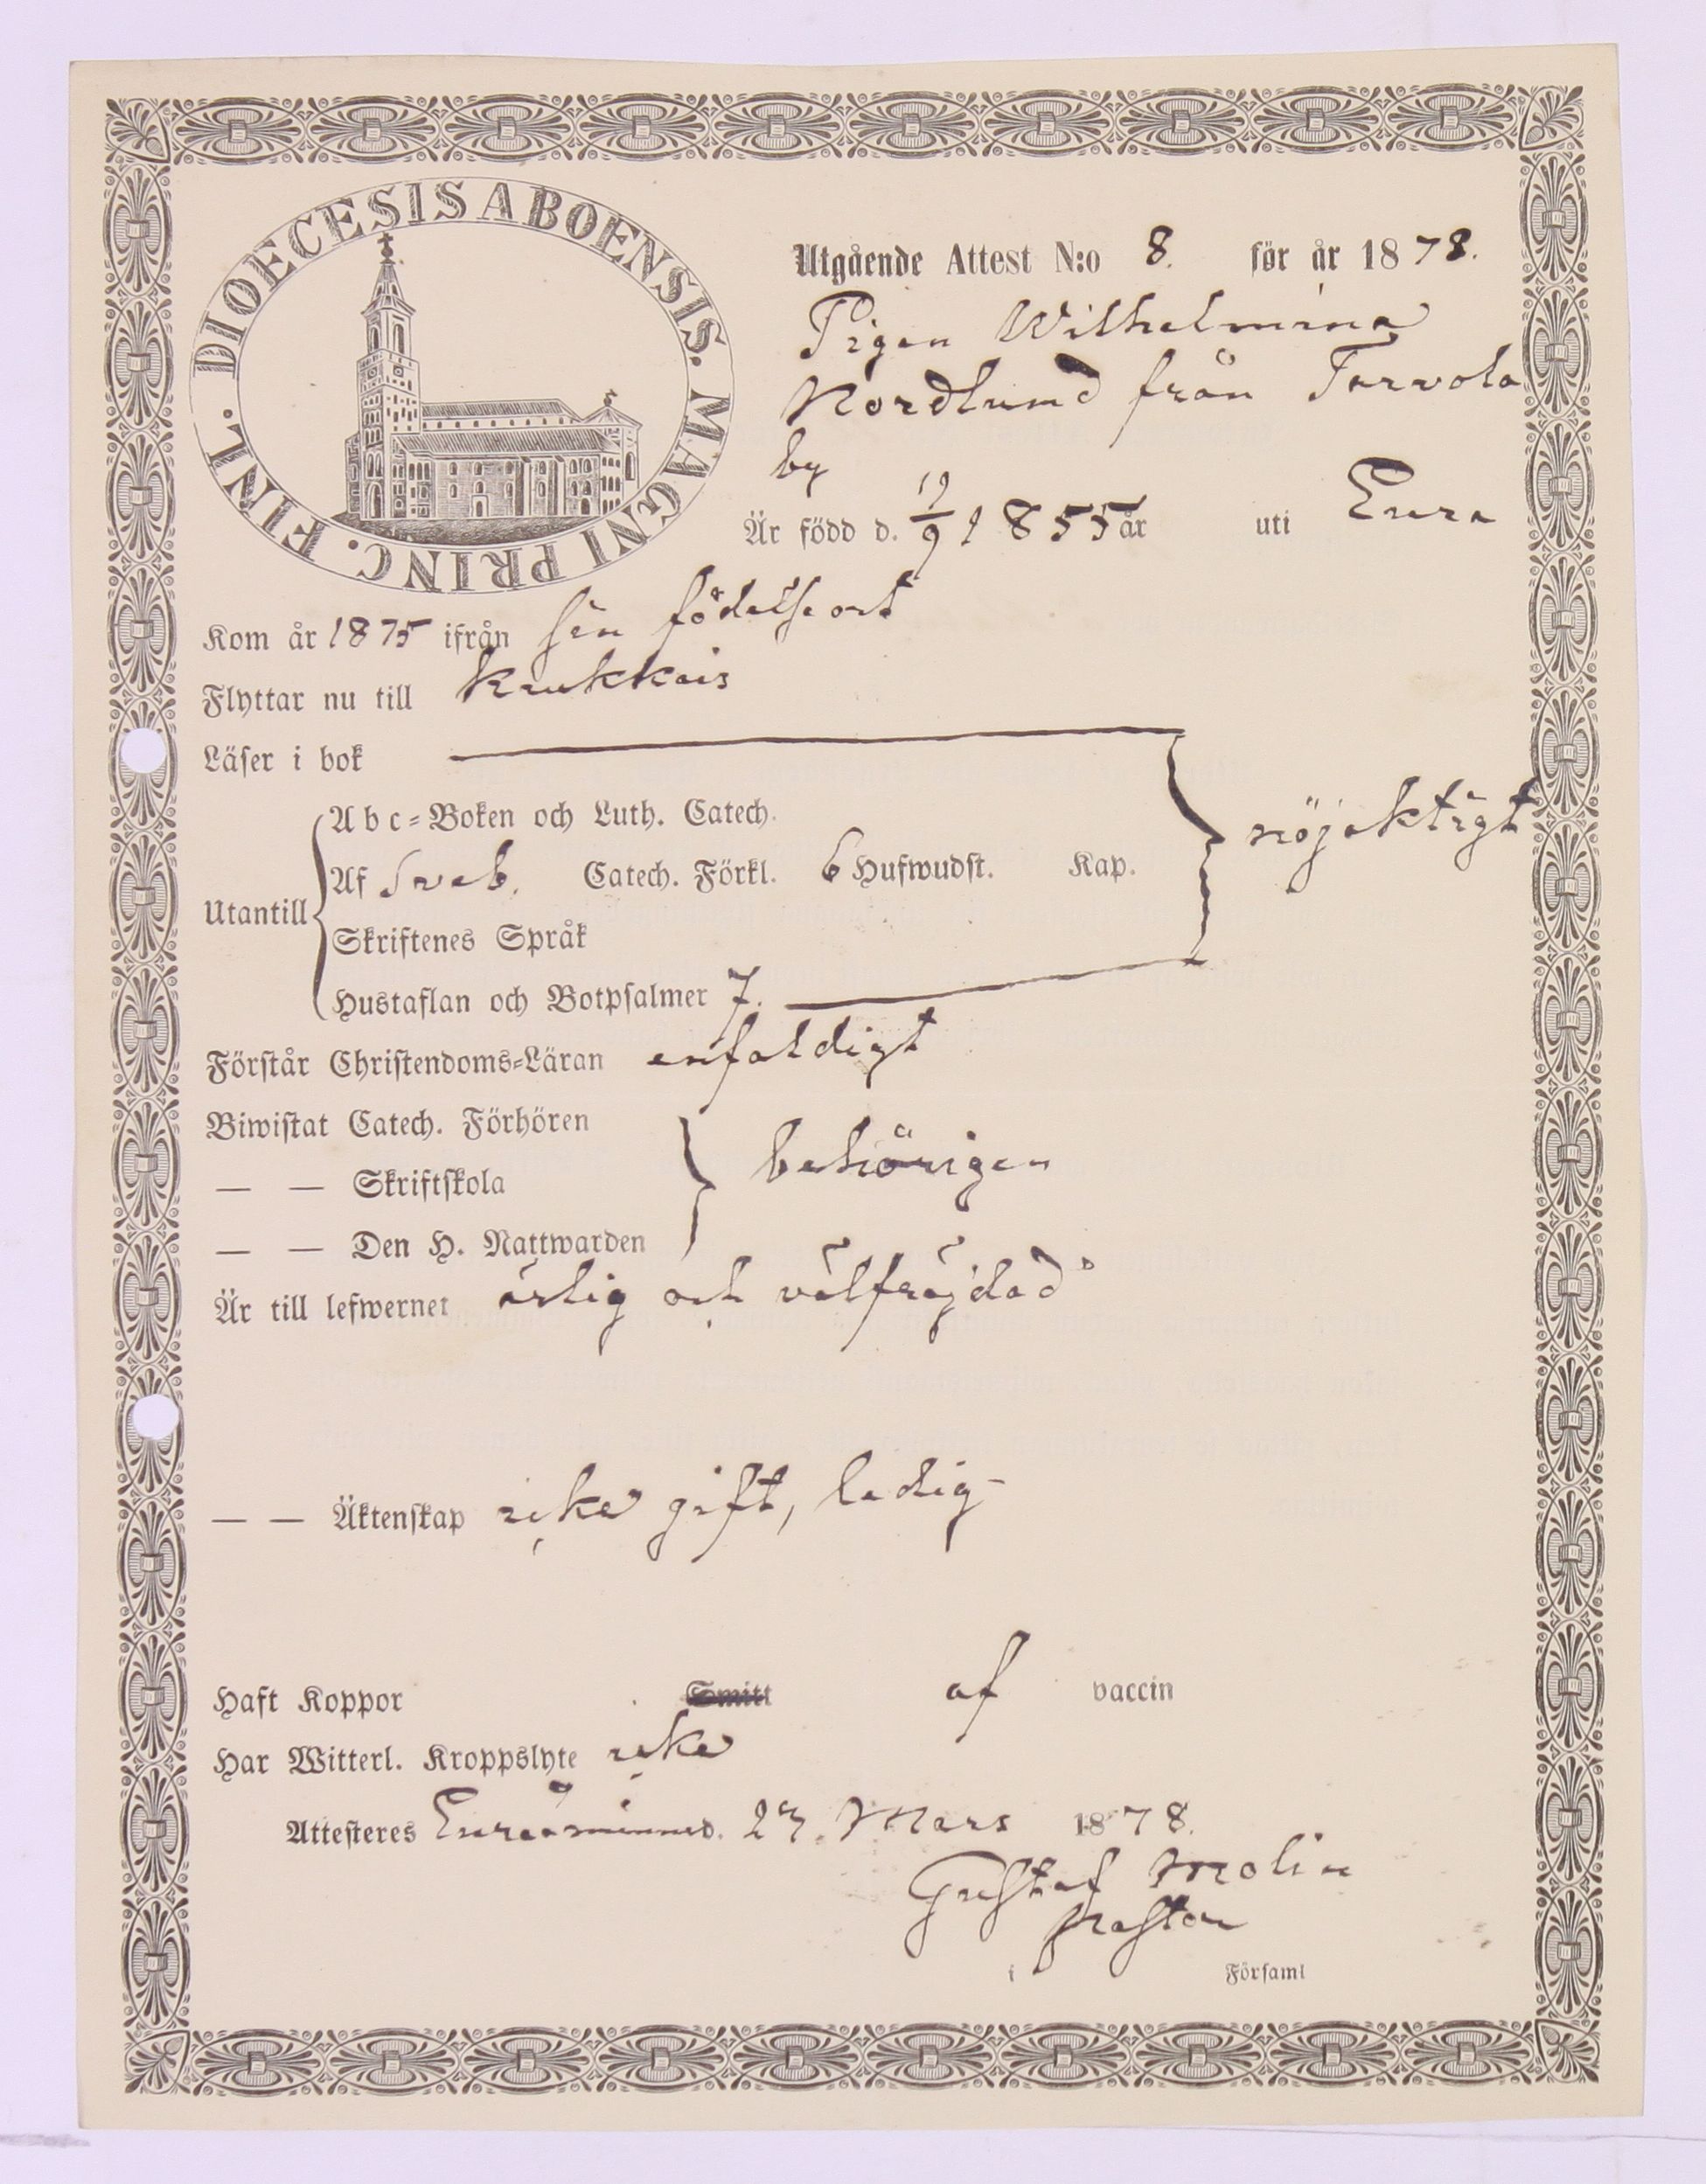 DIOECESIS ABOENSIS. MAGNI PRINC. FINL.
Utgående Attest N:o 8. för år 1878.
Pigan Wilhelmina
Nordlund från Torvola
by
Är född d. 19/9 1855 år uti Eura
Kom år 1875 ifrån sin födelseort
Flyttar nu till Kiukkais
Läser i bok
Abc-Boken och Luth. Catech. nöjaktigt
Utantill Af Sveb. Catech. Förkl. 6 Hufwudst. Kap.
Skriftenes Språk
Hustaflan och Botpsalmer 7.
Förstår Christendoms-Läran enfaldigt
Biwistat Catech. Förhören
— — Skriftskola behörigen
— — Den H. Nattwarden
Är till lefwernet ärlig och välfräjdad
— — Äktenskap icke gift, ledig
Haft Koppor Smitt af vaccin
Har Witterl. Kroppslyte icke
Attesteres Euraåminne d. 27. Mars 1878.
Gustaf Molin
pastor
i Församl